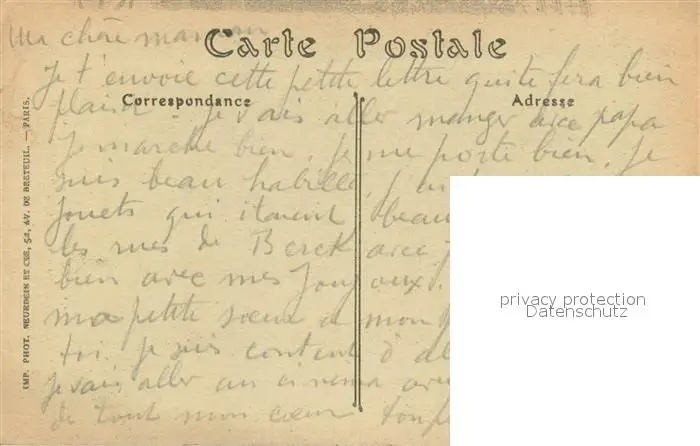 Ma chère maman
Carte Postale
Je t'envoie cette petite lettre qui te fera bien
Correspondance
Adresse
plaisir. Je vais aller manger avec papa
Je marche bien. Je me porte bien. Je
suis beau habillé, J'
Jouets qui étaient beau
les rues de Berck avec
bien avec mes joujoux.
ma petite sœur a mon
toi. Je suis content d'al
Je vais aller au cinema avec
de tout mon cœur ton
IMP. PHOT. NEURDEIN ET CIE, 52, AV. DE BRETEUIL. — PARIS.
privacy protection
Datenschutz